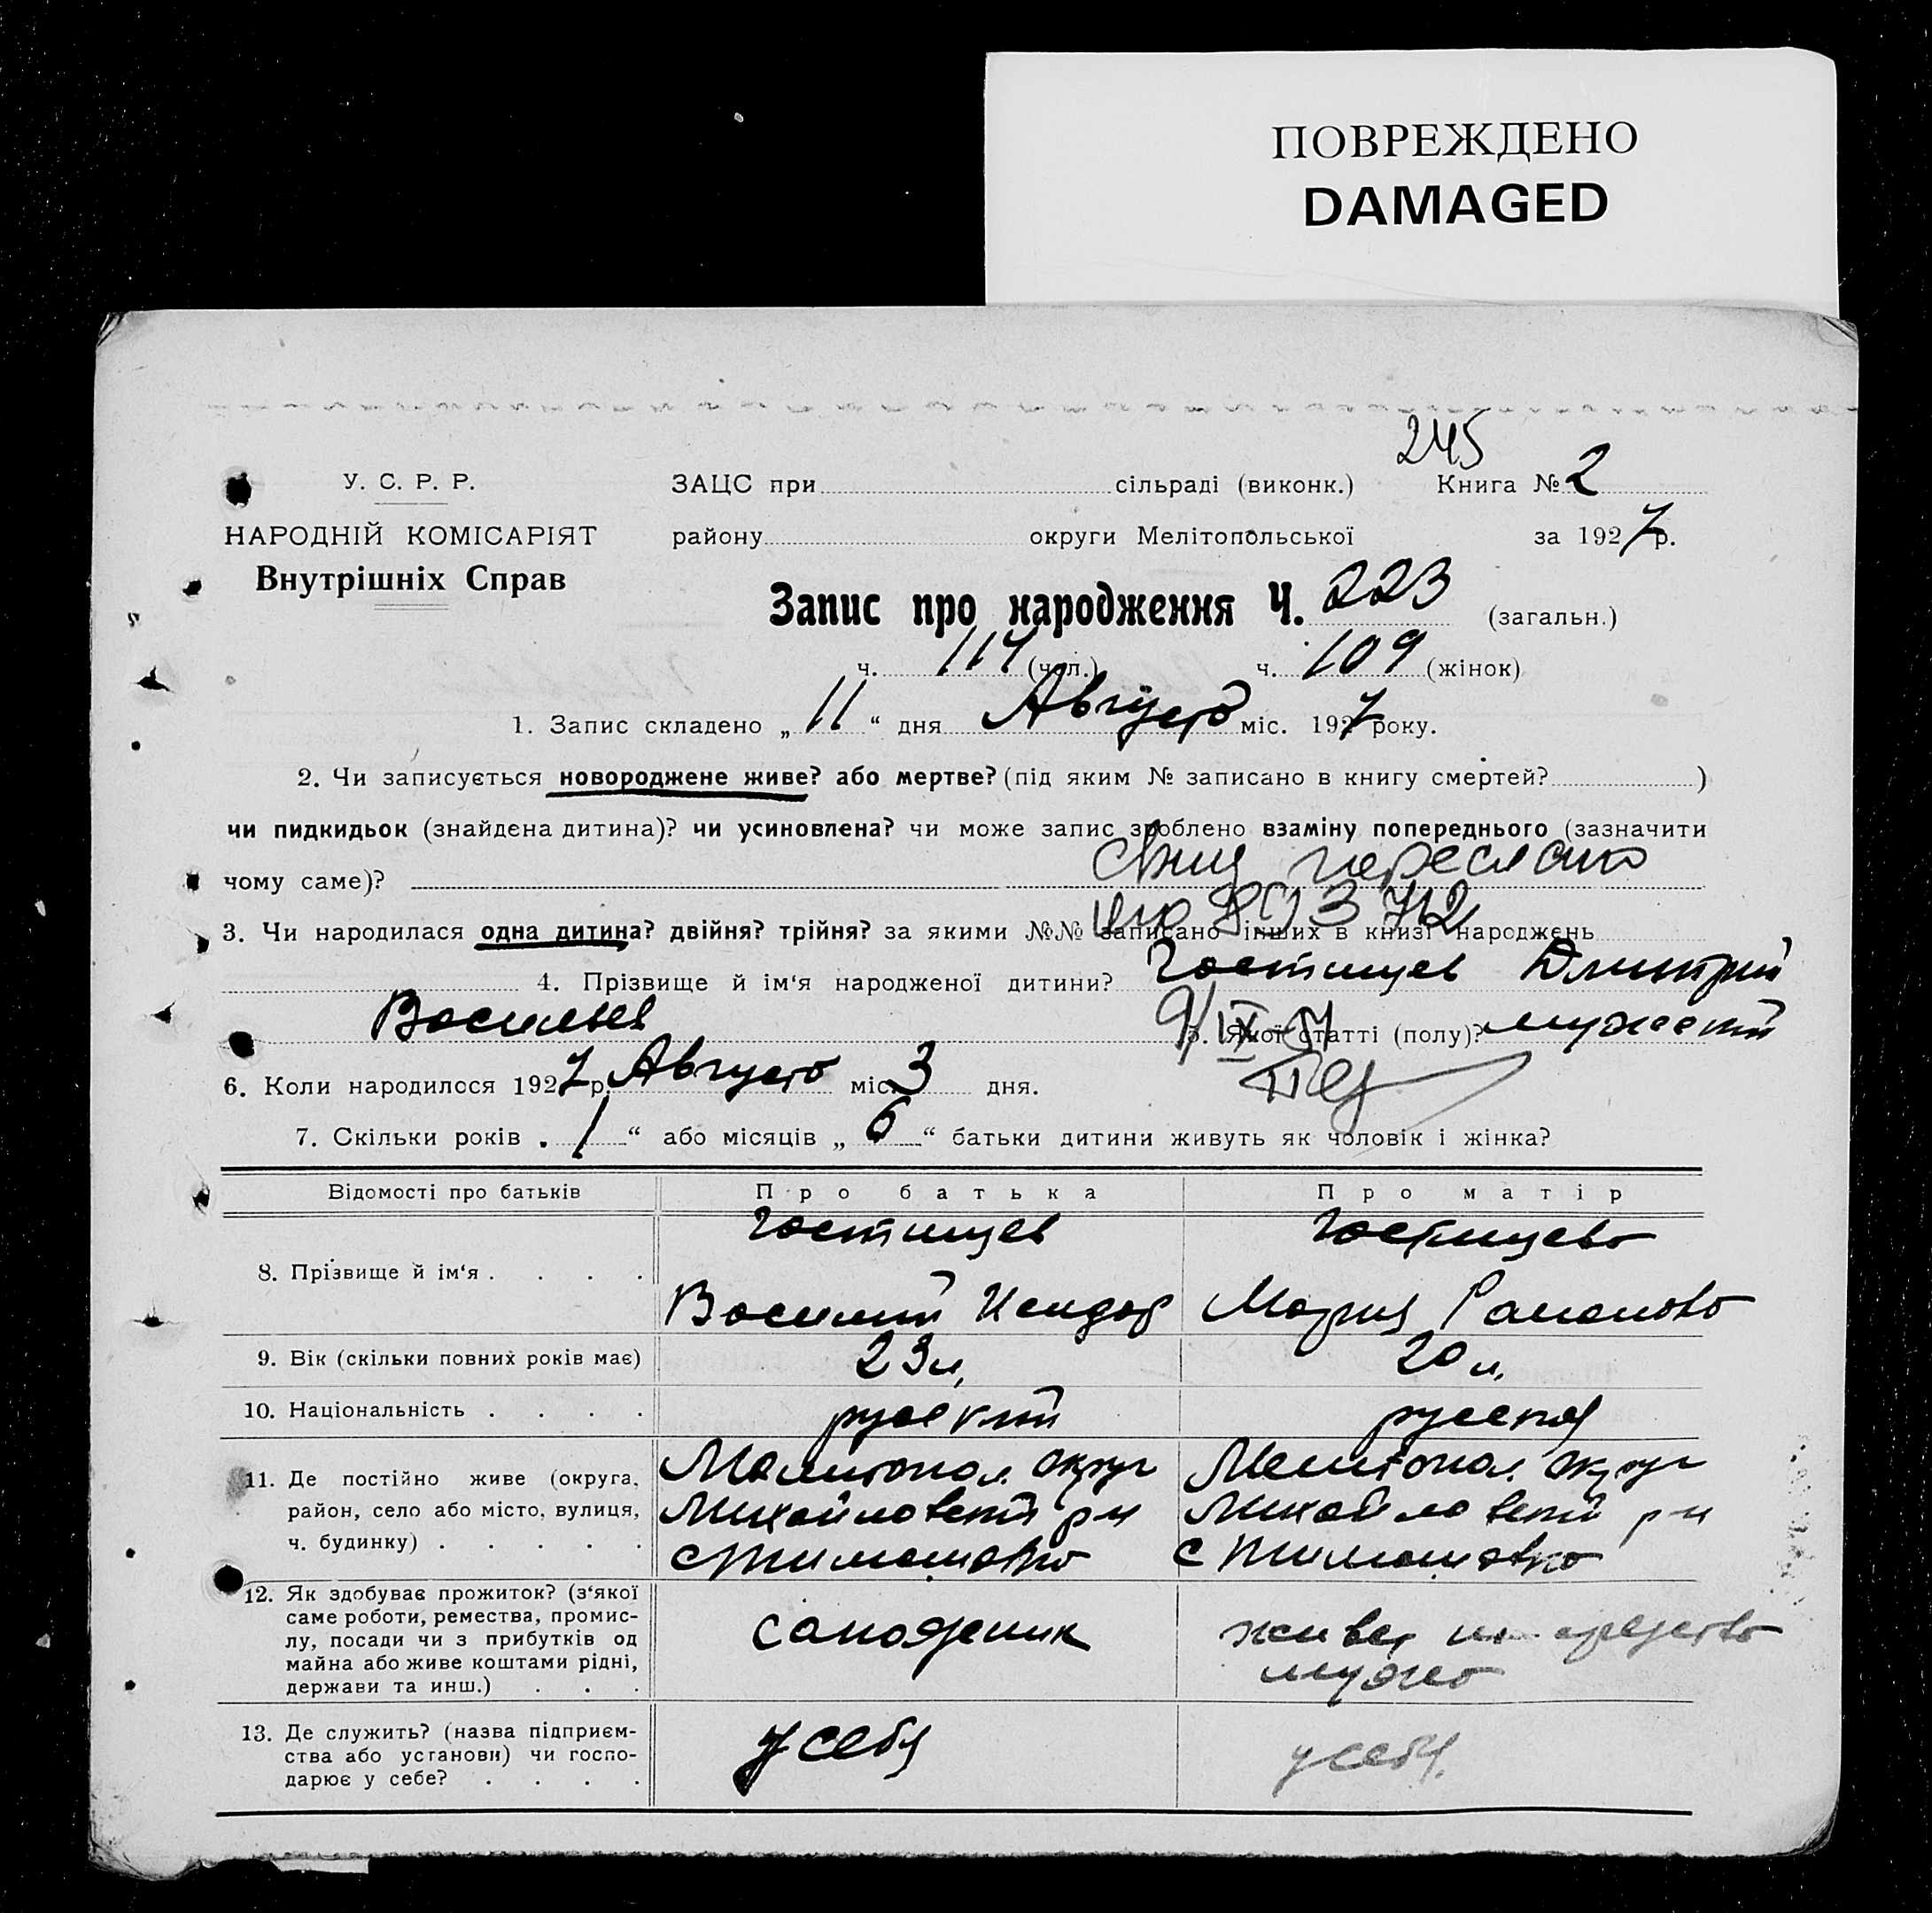 ПОВРЕЖДЕНО
DAMAGED
245
У. С. Р. Р.
ЗАЦС при сільраді (виконк.) Книга № 2
НАРОДНІЙ КОМІСАРІЯТ
Внутрішніх Справ
району округи Мелітопольської за 1927 р.
Запис про народження Ч. 223 (загальн.)
ч. 114 (чол.) ч. 109 (жінок)
1. Запис складено „ 11 “ дня Августа міс. 1927 року.
2. Чи записується новороджене живе? або мертве? (під яким № записано в книгу смертей? )
чи пидкидьок (знайдена дитина)? чи усиновлена? чи може запис зроблено взаміну попереднього (зазначити
чому саме)?
3. Чи народилася одна дитина? двійня? трійня? за якими №№ записано інших в книзі народжень
4. Прізвище й ім‘я народженої дитини? Гостищев Дмитрий
Васильев 5. Якої статті (полу)? мужской
6. Коли народилося 1927 р. Августа міс. 3 дня.
7. Скільки років „ 1 “ або місяців „ 6 “ батьки дитини живуть як чоловік і жінка?
Відомості про батьків Про батька Про матір
8. Прізвище й ім‘я . . . . Гостищев Василий Исидор Гостищева Мария Романова
9. Вік (скільки повних років має) 23 л. 20 л.
10. Національність . . . . русский русская
11. Де постійно живе (округа,
район, село або місто, вулиця,
ч. будинку) . . . . .
Мелитопол. округ
Михайловский р-н
с Тимошовка
Мелитопол. округ
Михайловский р-н
с Тимошовка
12. Як здобуває прожиток? (з‘якої
саме роботи, ремества, промис-
лу, посади чи з прибутків од
майна або живе коштами рідні,
держави та инш.) . . .
живет на средства
мужа
13. Де служить? (назва підприєм-
ства або установи) чи госпо-
дарює у себе? . . . .
у себя
у себя.